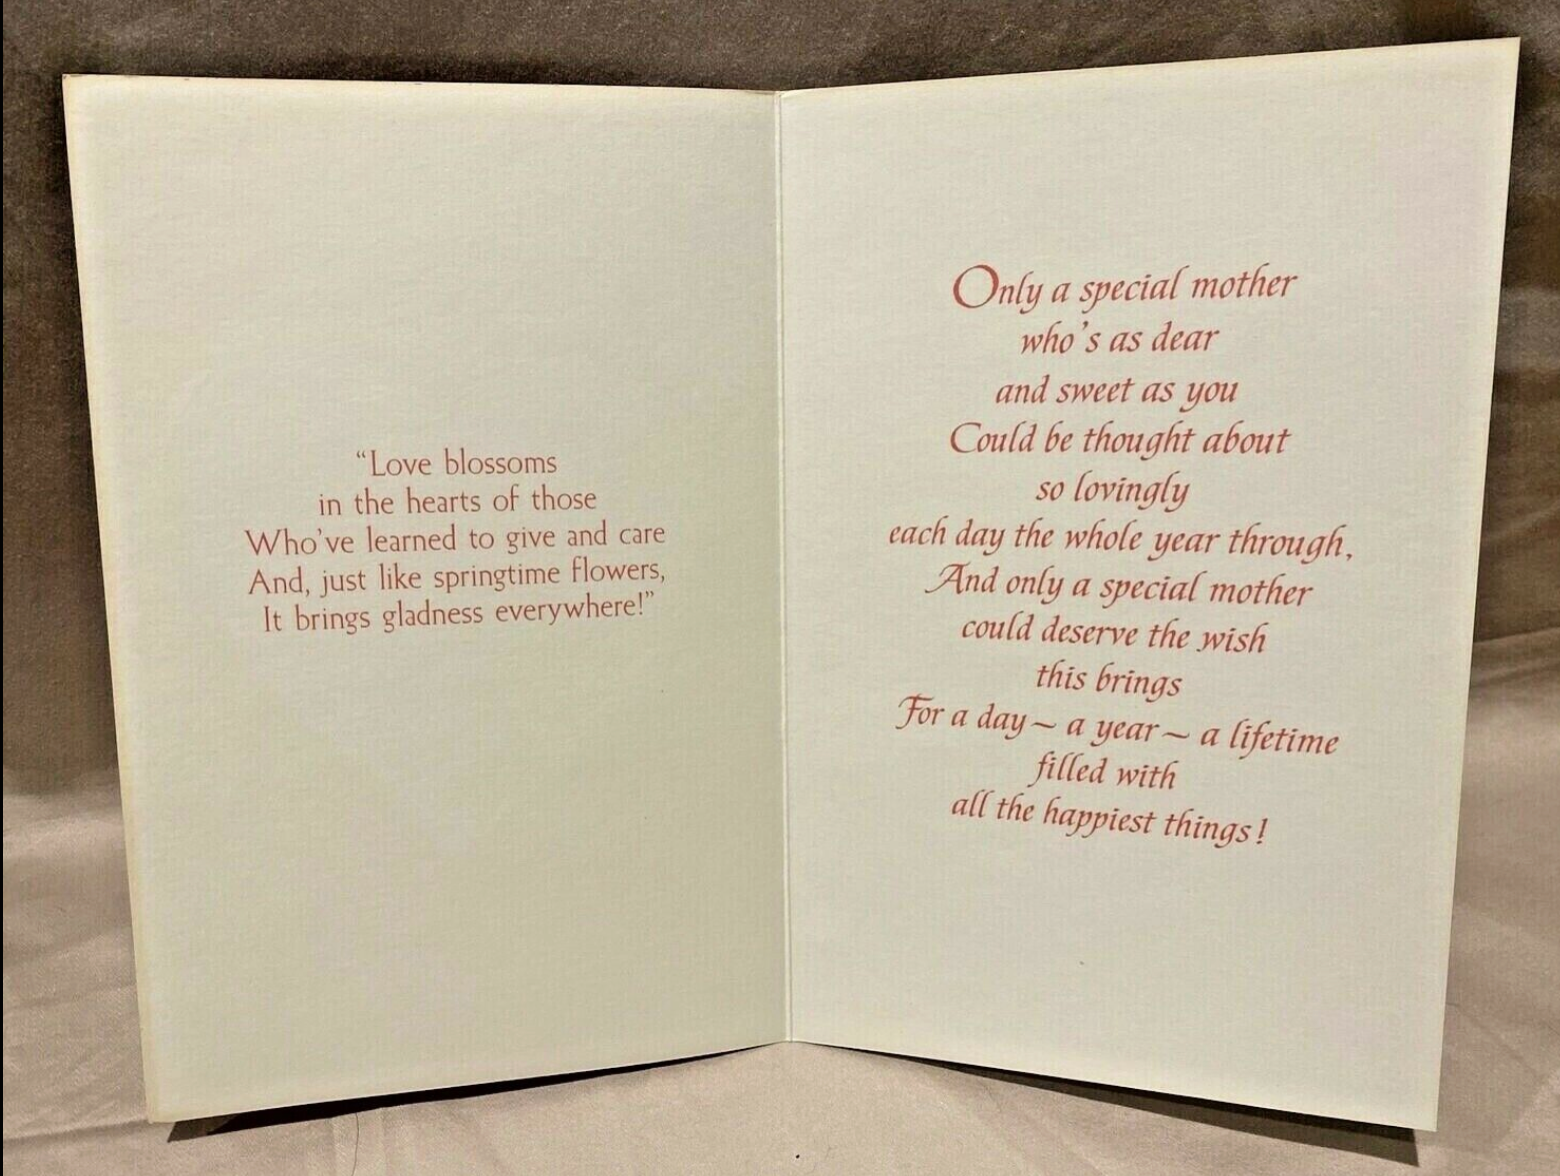 “Love blossoms
in the hearts of those
Who’ve learned to give and care
And, just like springtime flowers,
It brings gladness everywhere!”
Only a special mother
who’s as dear
and sweet as you
Could be thought about
so lovingly
each day the whole year through,
And only a special mother
could deserve the wish
this brings
For a day ~ a year ~ a lifetime
filled with
all the happiest things!